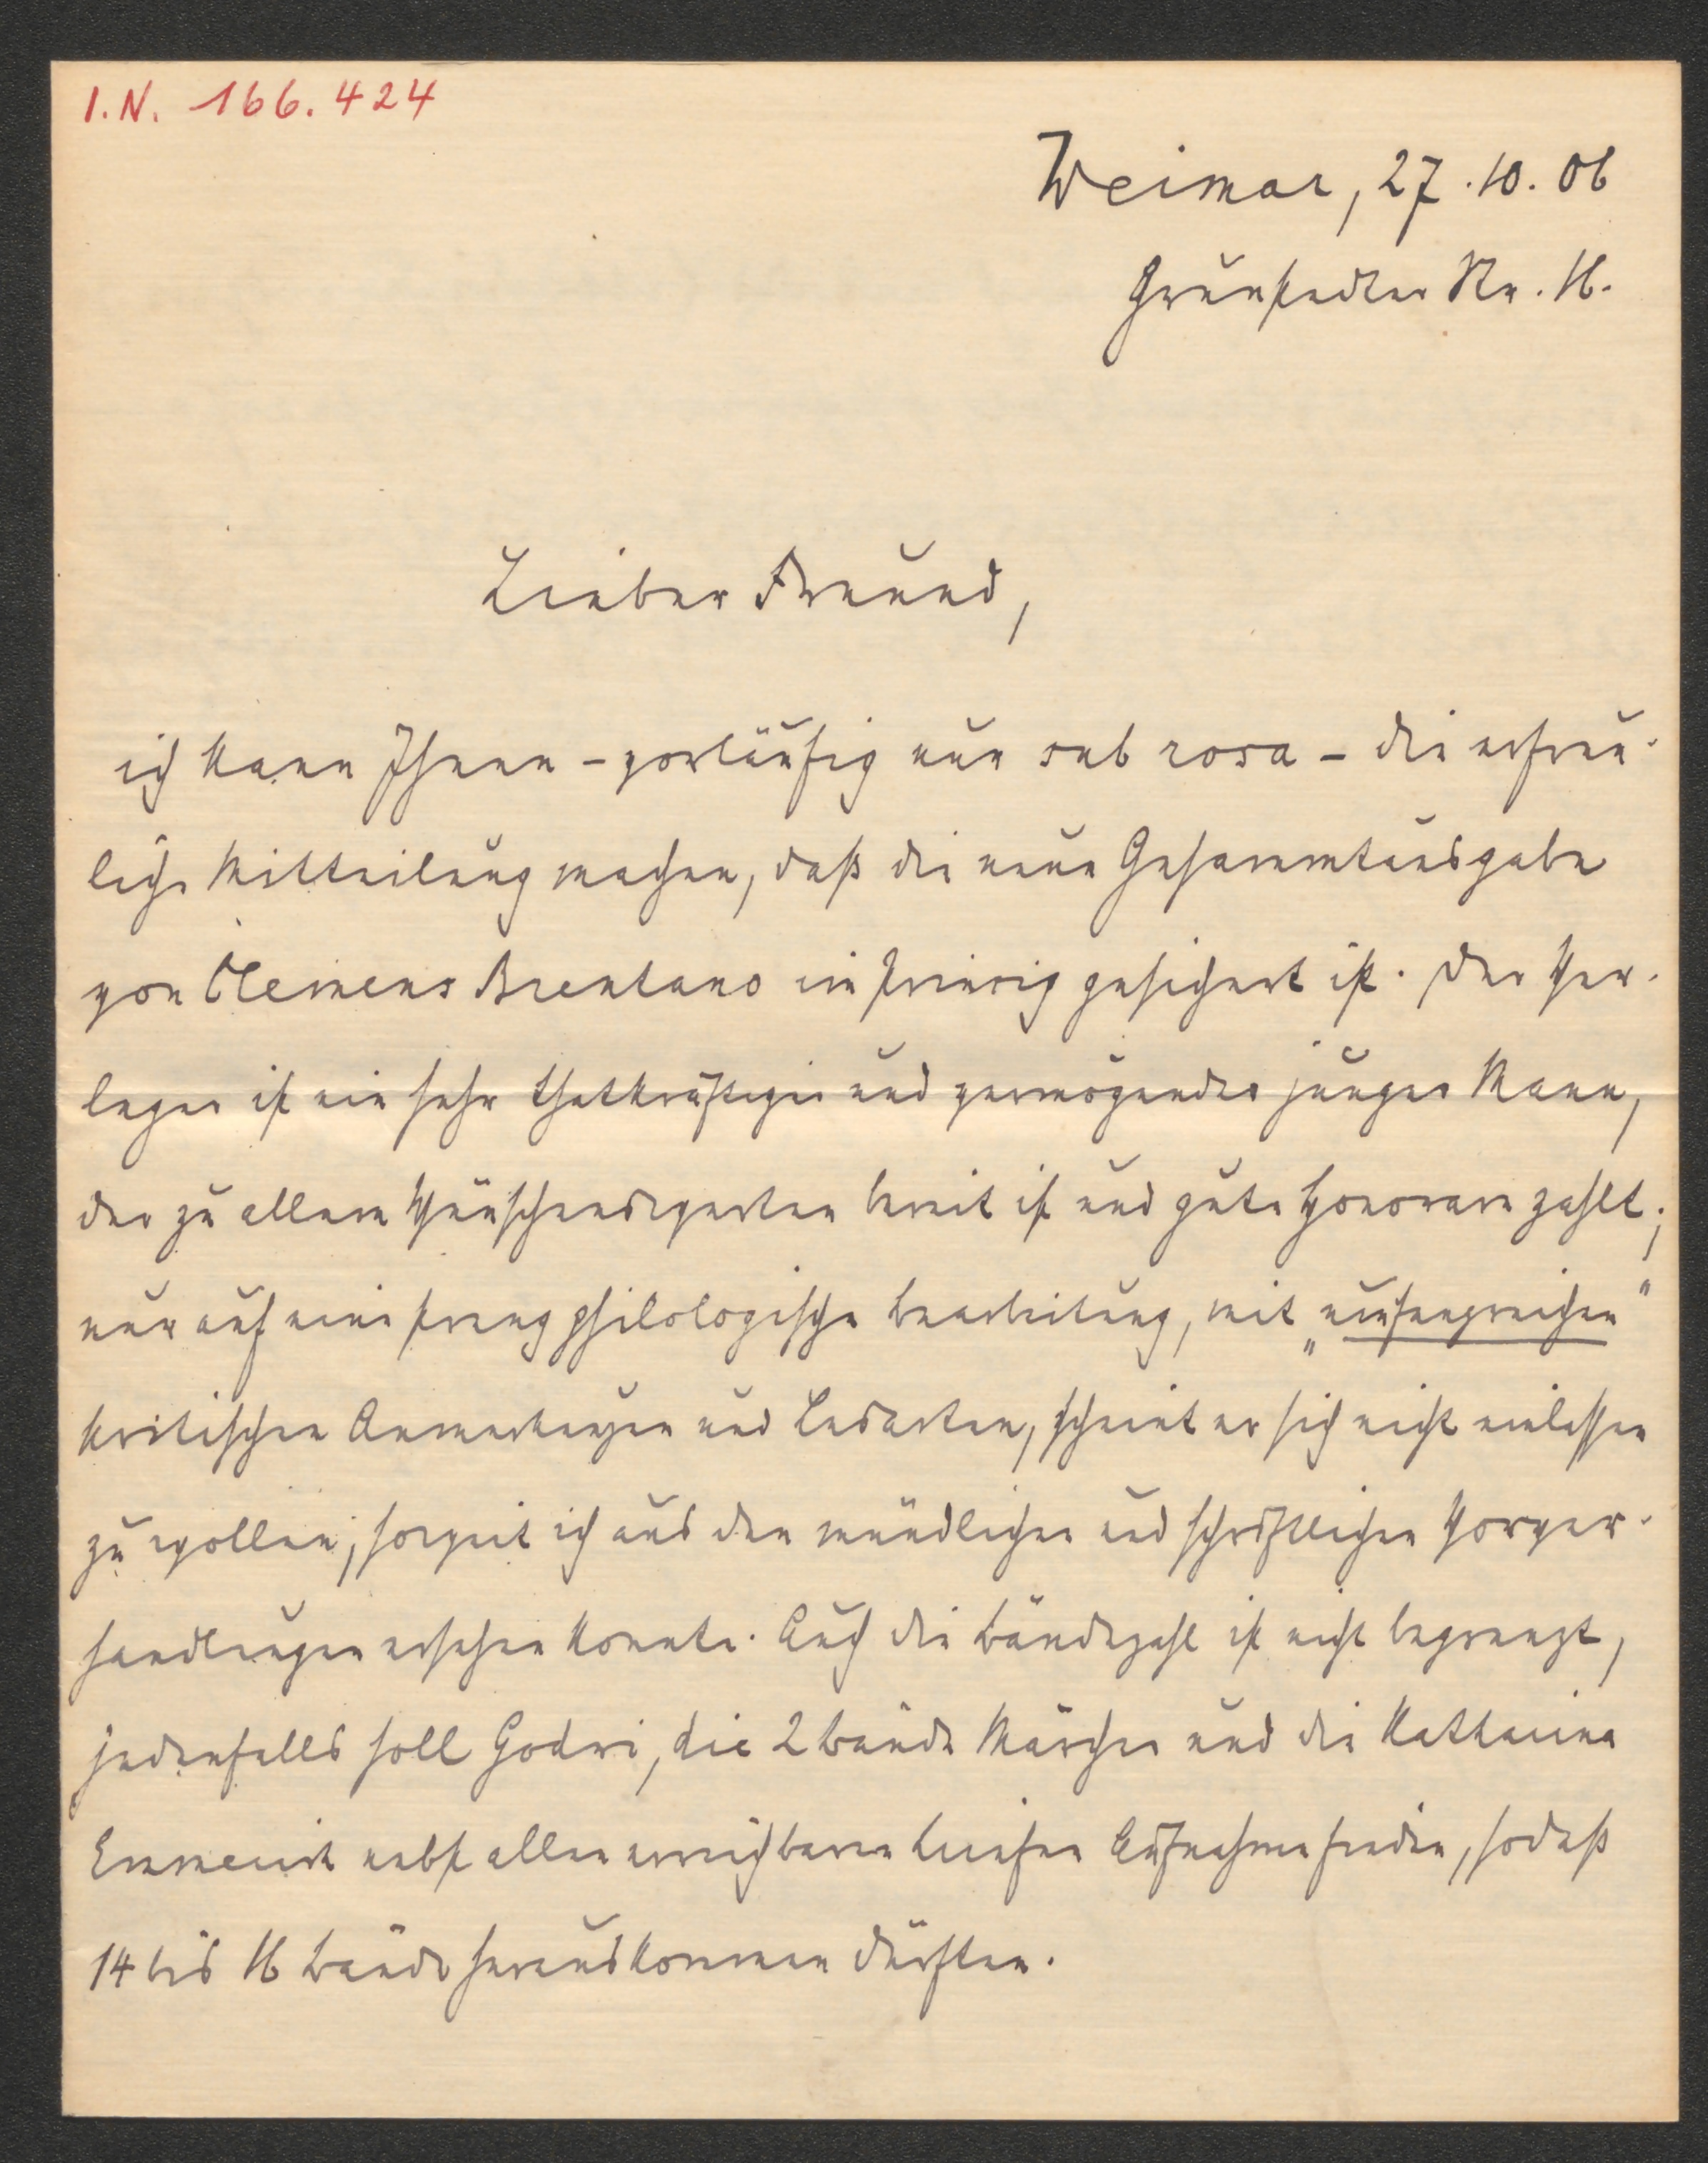 I.N. 166.424
Weimar, 27.10.06
Grunstedter Str. 16.
Lieber Freund,
ich kann Ihnen – vorläufig nur sub rosa – die erfreu-
liche Mitteilung machen, daß die neue Gesammtausgabe
von Clemens Brentano im Prinzip gesichert ist. Der Ver-
leger ist ein sehr thatkräftiger und vermögender junger Mann,
der zu allem Wünschenswerten bereit ist und gute Honorare zahlt;
nur auf eine streng philologische Bearbeitung, mit „umfangreichen“
kritischen Anmerkungen und Lesarten, scheint er sich nicht einlassen
zu wollen, soweit ich aus den mündlichen und schriftlichen Vorver-
handlungen ersehen konnte. Auch die Bändezahl ist nicht begrenzt,
jedenfalls soll Godwi, die 2 Bände Märchen und die Katharina
Emmerick nebst allen erreichbaren Briefen Aufnahme finden, sodaß
14 bis 16 Bände herauskommen dürften.